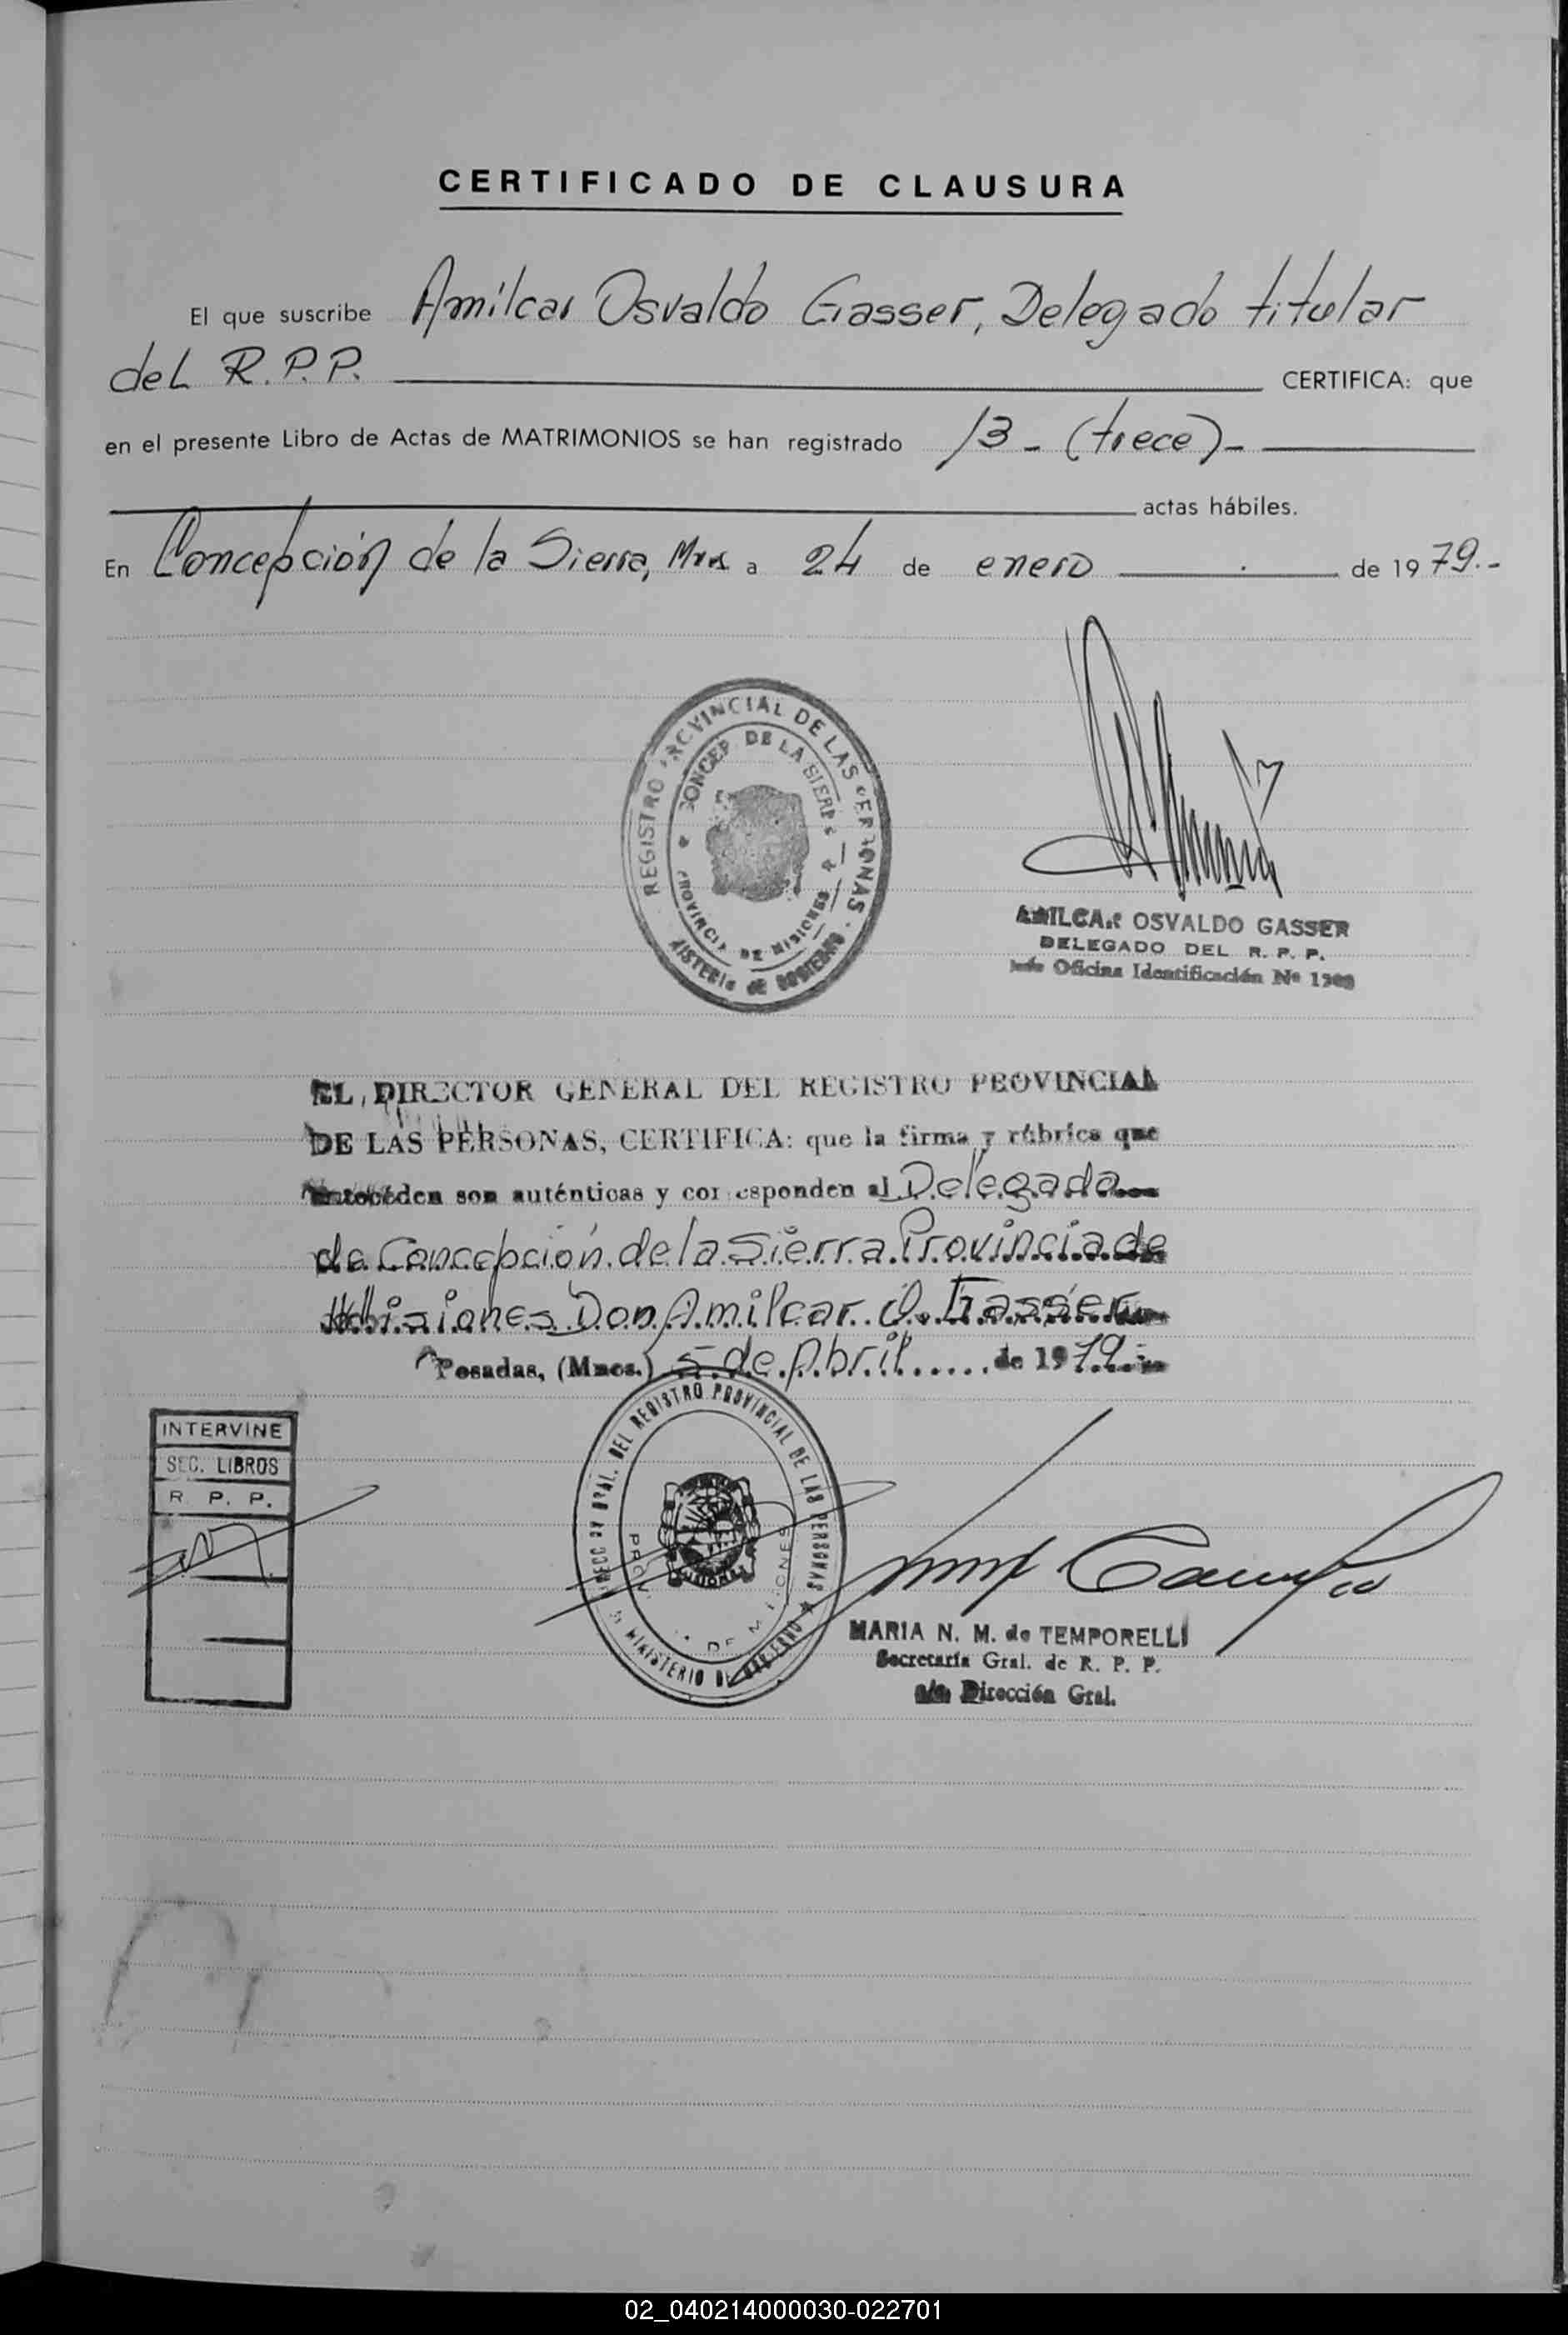 CERTIFICADO DE CLAUSURA
El que suscribe Amilcar Osvaldo Gasser, Delegado titular
del R.P.P. CERTIFICA: que
en el presente Libro de Actas de MATRIMONIOS se han registrado 13 - (trece) -
actas hábiles.
En Concepción de la Sierra, Mnes a 24 de enero de 1979.-
REGISTRO PROVINCIAL DE LAS PERSONAS
CONCEP DE LA SIERRA
PROVINCIA DE MISIONES
MISTERIO DE GOBIERNO
AMILCAR OSVALDO GASSER
DELEGADO DEL R. P. P.
Oficina Identificación Nº
EL DIRECTOR GENERAL DEL REGISTRO PROVINCIAL
DE LAS PERSONAS, CERTIFICA: que la firma y rúbrica que
anteceden son auténticas y corresponden al Delegado
de Concepción de la Sierra Provincia de
Misiones Don Amilcar O. Gasser
Posadas, (Mnes.) 5 de Abril de 1979
INTERVINE
SEC. LIBROS
R. P. P.
DIRECCION GRAL. DEL REGISTRO PROVINCIAL DE LAS PERSONAS
MINISTERIO DE GOBIERNO
PROV. DE MISIONES
MARIA N. M. de TEMPORELLI
Secretaría Gral. de R. P. P.
a/c Dirección Gral.
02_040214000030-022701